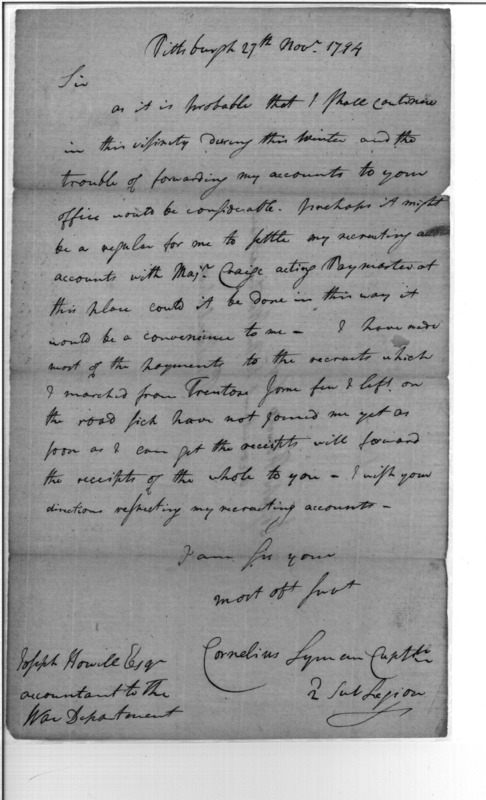 Pittsburgh 27th Novr. 1794
Sir
as it is probable that I shall continue
in this visinity during this Winter and the
trouble of forwarding my accounts to your
office would be considerable. Perhaps it might
be a regular for me to settle my recruiting
accounts with Majr. Craige acting Paymaster at
this place could it be done in this way it
would be a convenience to me – I have made
most of the payments to the recruits which
I marched from Trentone some few I left on
the road sick have not joined me yet as
soon as I can get the receipts will forward
the receipts of the whole to you – I wish your
directions respecting my recruiting accounts –
I am Sir your
most obt Servt
Cornelius Lyman Captn
2 Sub Legion
Joseph Howell Esqr
accountant to the
War Department